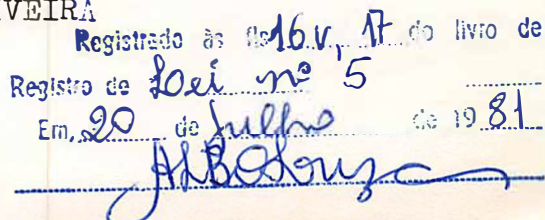 VEIRA
Registrado às fls 16 v, 17 do livro de
Registro de Lei nº 5
Em, 20 de Julho de 19 81